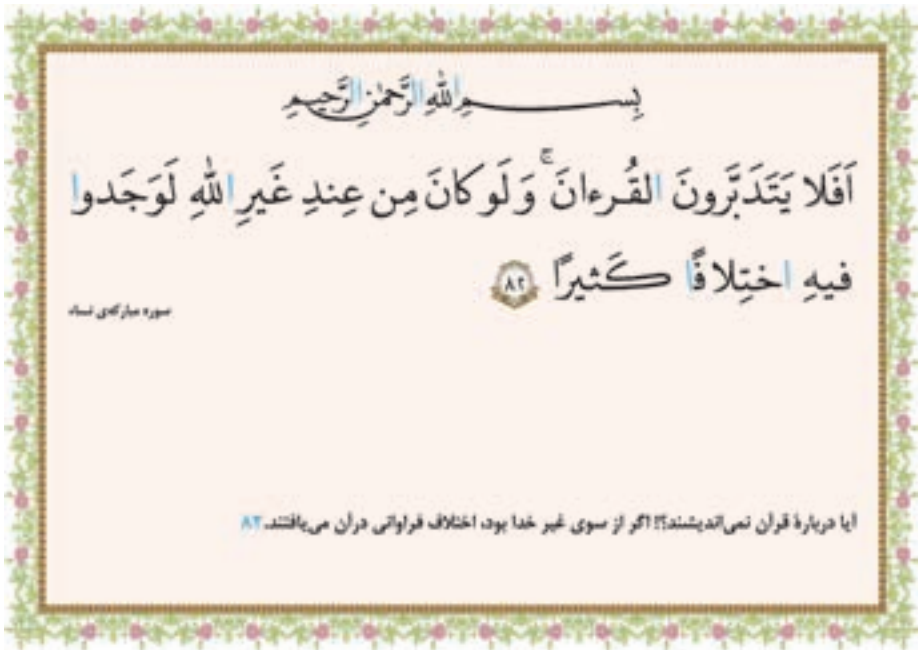 بِسمِ اللهِ الرَّحمٰنِ الرَّحیمِ
اَفَلا یَتَدَبَّرونَ القُرءانَ ۚ وَ لَو کانَ مِن عِندِ غَیرِ اللهِ لَوَجَدوا
فیهِ اختِلافًا کَثیرًا ﴿۸۲﴾
سوره مبارکه‌ی نساء
آیا دربارهٔ قرآن نمی‌اندیشند؟! اگر از سوی غیر خدا بود، اختلاف فراوانی درآن می‌یافتند. ۸۲